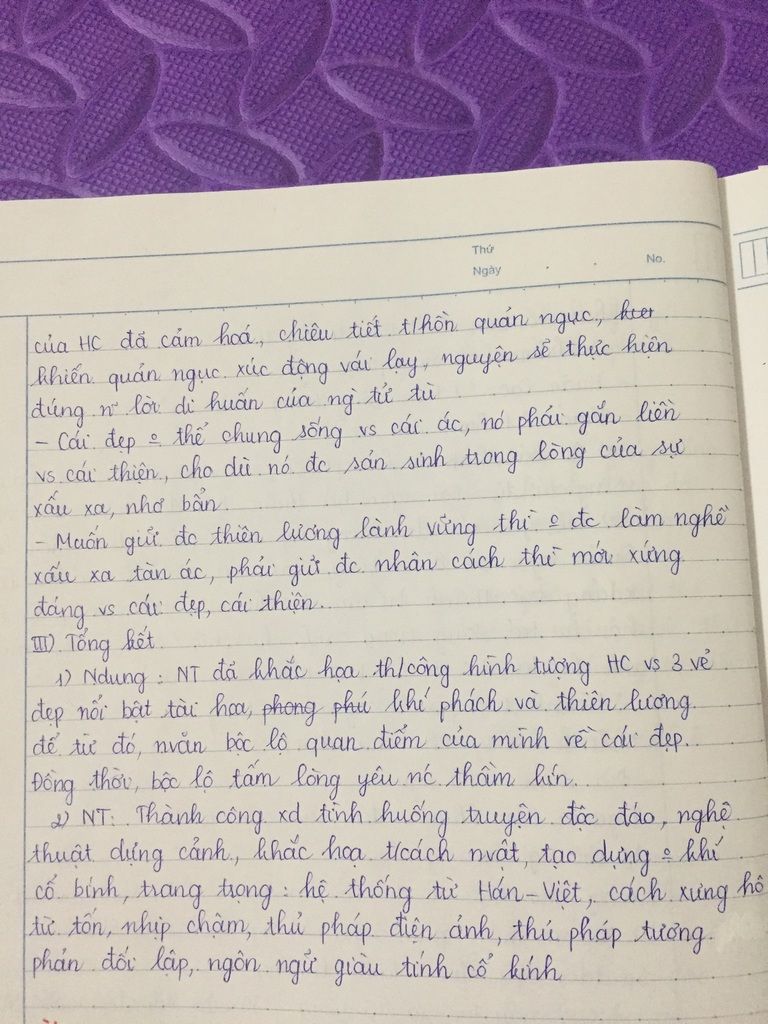 Thứ
Ngày . . No.
của HC đã cảm hoá, chiêu tiết t/hồn quản ngục,
khiến quản ngục xúc động vái lạy, nguyện sẽ thực hiện
đúng n~ lời di huấn của ng` tử tù
- Cái đẹp o thể chung sống vs cái ác, nó phải gắn liền
vs cái thiện, cho dù nó đc sản sinh trong lòng của sự
xấu xa, nhơ bẩn.
- Muốn giữ đc thiên lương lành vững thì o đc làm nghề
xấu xa tàn ác, phải giữ đc nhân cách thì mới xứng
đáng vs cái đẹp, cái thiện.
III) Tổng kết
1) Ndung: NT đã khắc họa th/công hình tượng HC vs 3 vẻ
đẹp nổi bật tài hoa, phong phú khí phách và thiên lương
để từ đó, nvăn bộc lộ quan điểm của mình về cái đẹp.
Đồng thời, bộc lộ tấm lòng yêu nc' thầm kín.
2) NT: Thành công xd tình huống truyện độc đáo, nghệ
thuật dựng cảnh, khắc hoạ t/cách nvật, tạo dựng o khí
cổ kính, trang trọng: hệ thống từ Hán-Việt, cách xưng hô
từ tốn, nhịp chậm, thủ pháp điện ảnh, thủ pháp tương
phản đối lập, ngôn ngữ giàu tính cổ kính